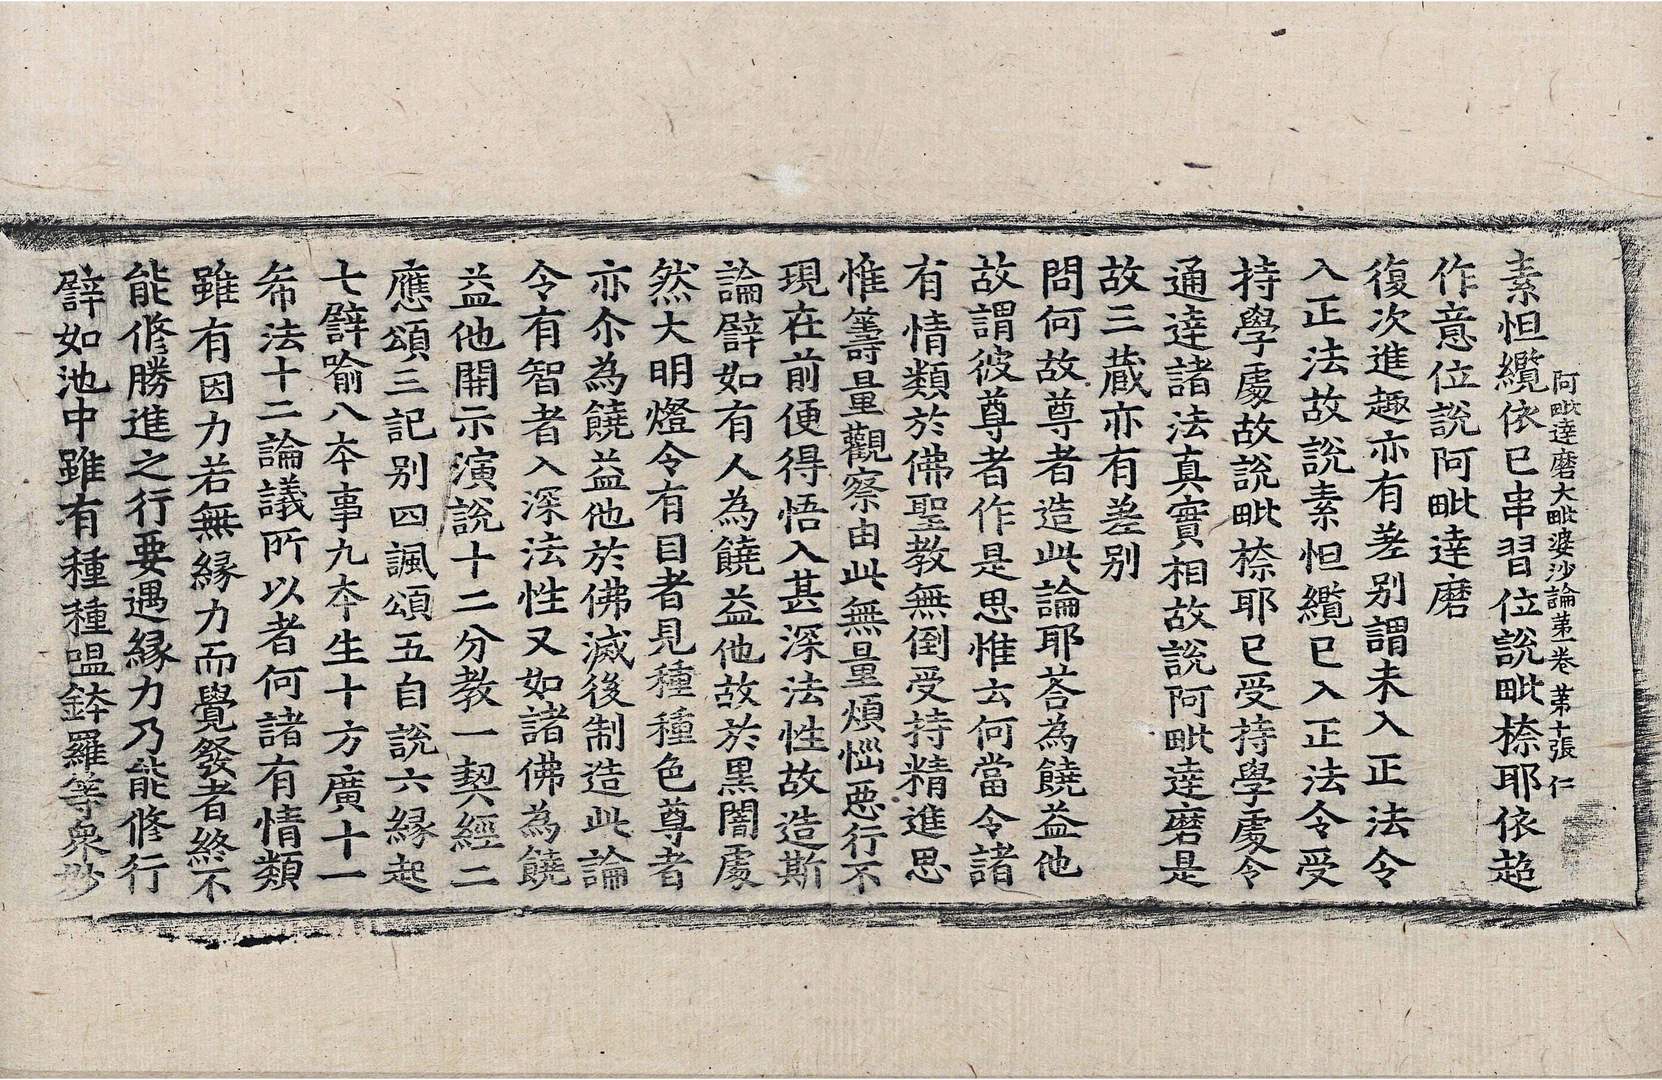 阿毗達磨大毗婆沙論第一卷 第十張 仁
素怛纜依已串習位說毗柰耶依超
作意位說阿毗達磨
復次進趣亦有差别謂未入正法令
入正法故說素怛纜已入正法令受
持學處故說毗柰耶已受持學處令
通達諸法真實相故說阿毗達磨是
故三藏亦有差别
問何故尊者造此論耶荅為饒益他
故謂彼尊者作是思惟云何當令諸
有情類於佛聖教無倒受持精進思
惟籌量觀察由此無量煩惱惡行不
現在前便得悟入甚深法性故造斯
論譬如有人為饒益他故於黑闇處
然大明燈令有目者見種種色尊者
亦尒為饒益他於佛滅後制造此論
令有智者入深法性又如諸佛為饒
益他開示演說十二分教一契經二
應頌三記别四諷頌五自說六緣起
七譬喻八本事九本生十方廣十一
希法十二論議所以者何諸有情類
雖有因力若無緣力而覺發者終不
能修勝進之行要遇緣力乃能修行
譬如池中雖有種種嗢鉢羅等衆妙